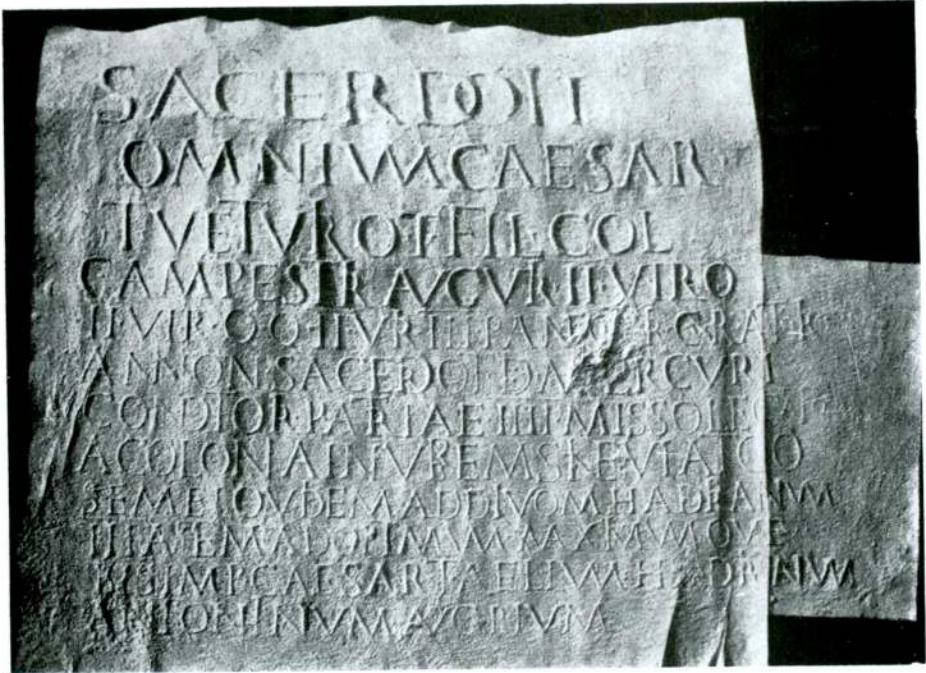 SACERDOTI
OMNIVM CAESAR
T VETVRO T·FIL·COL
CAMPESTR AVGVR·II·VIRO
II·VIR·QQ
ANNON SACERDOT DEI MERCVRI
CONDITOR PATRIAE IIII MISSO LEG
A COLONIA IN VRBEM SINE VIATICO
SEMEL QVIDEM AD DIVOM HADRIANVM
AD OPTIMVM MAXIMVMQVE
IMP CAESAR T AELIVM HADRIANVM
ANTONINVM AVG PIVM